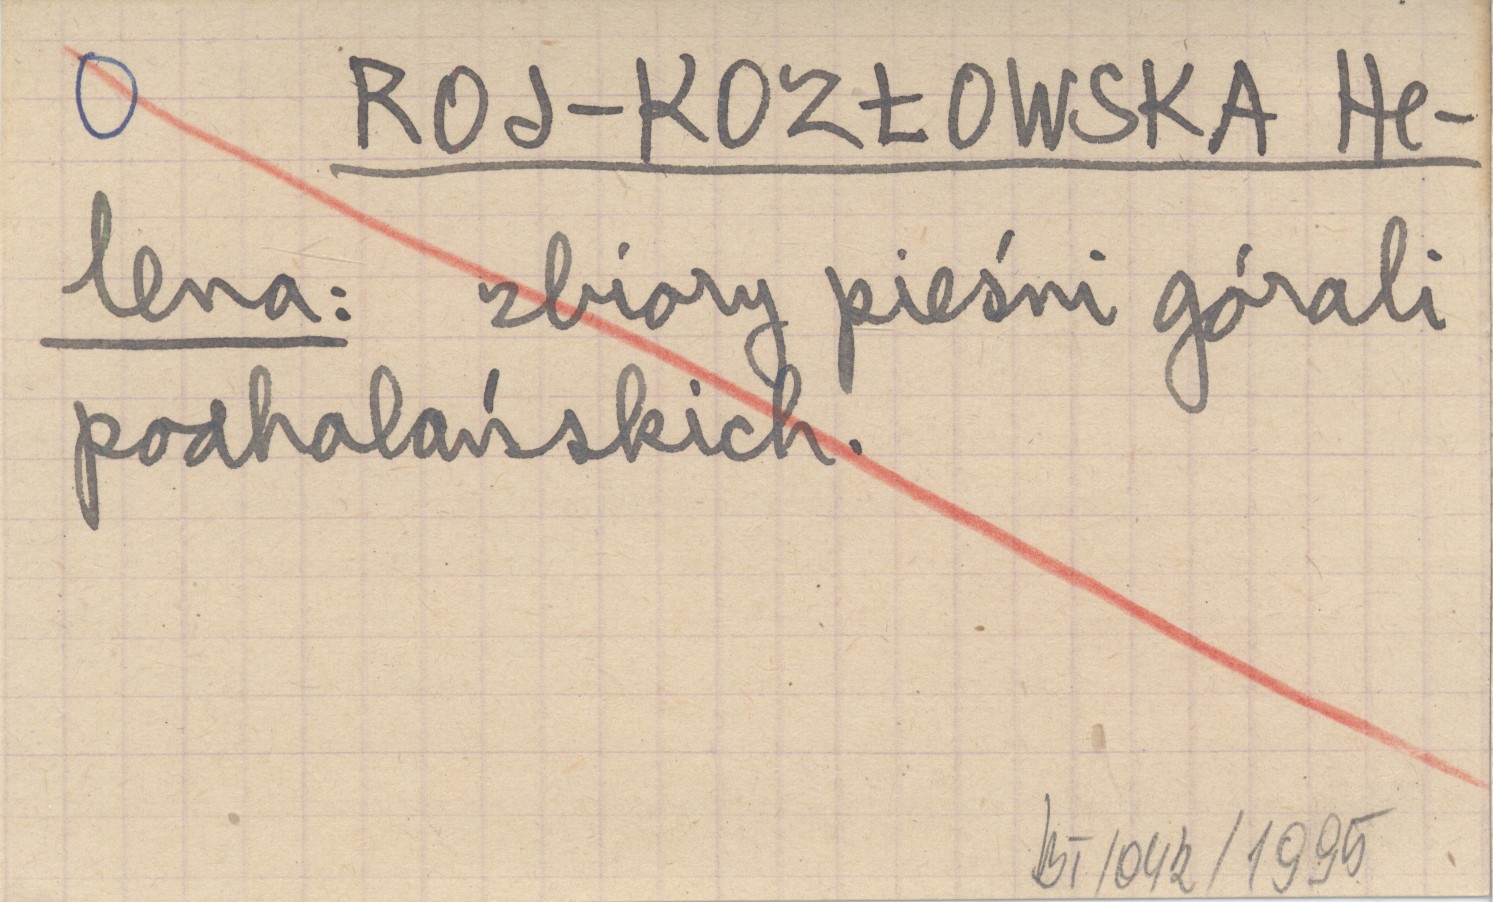 O ROJ-KOZŁOWSKA He-
lena: zbiory pieśni górali
podhalańskich.
BI/042/1995